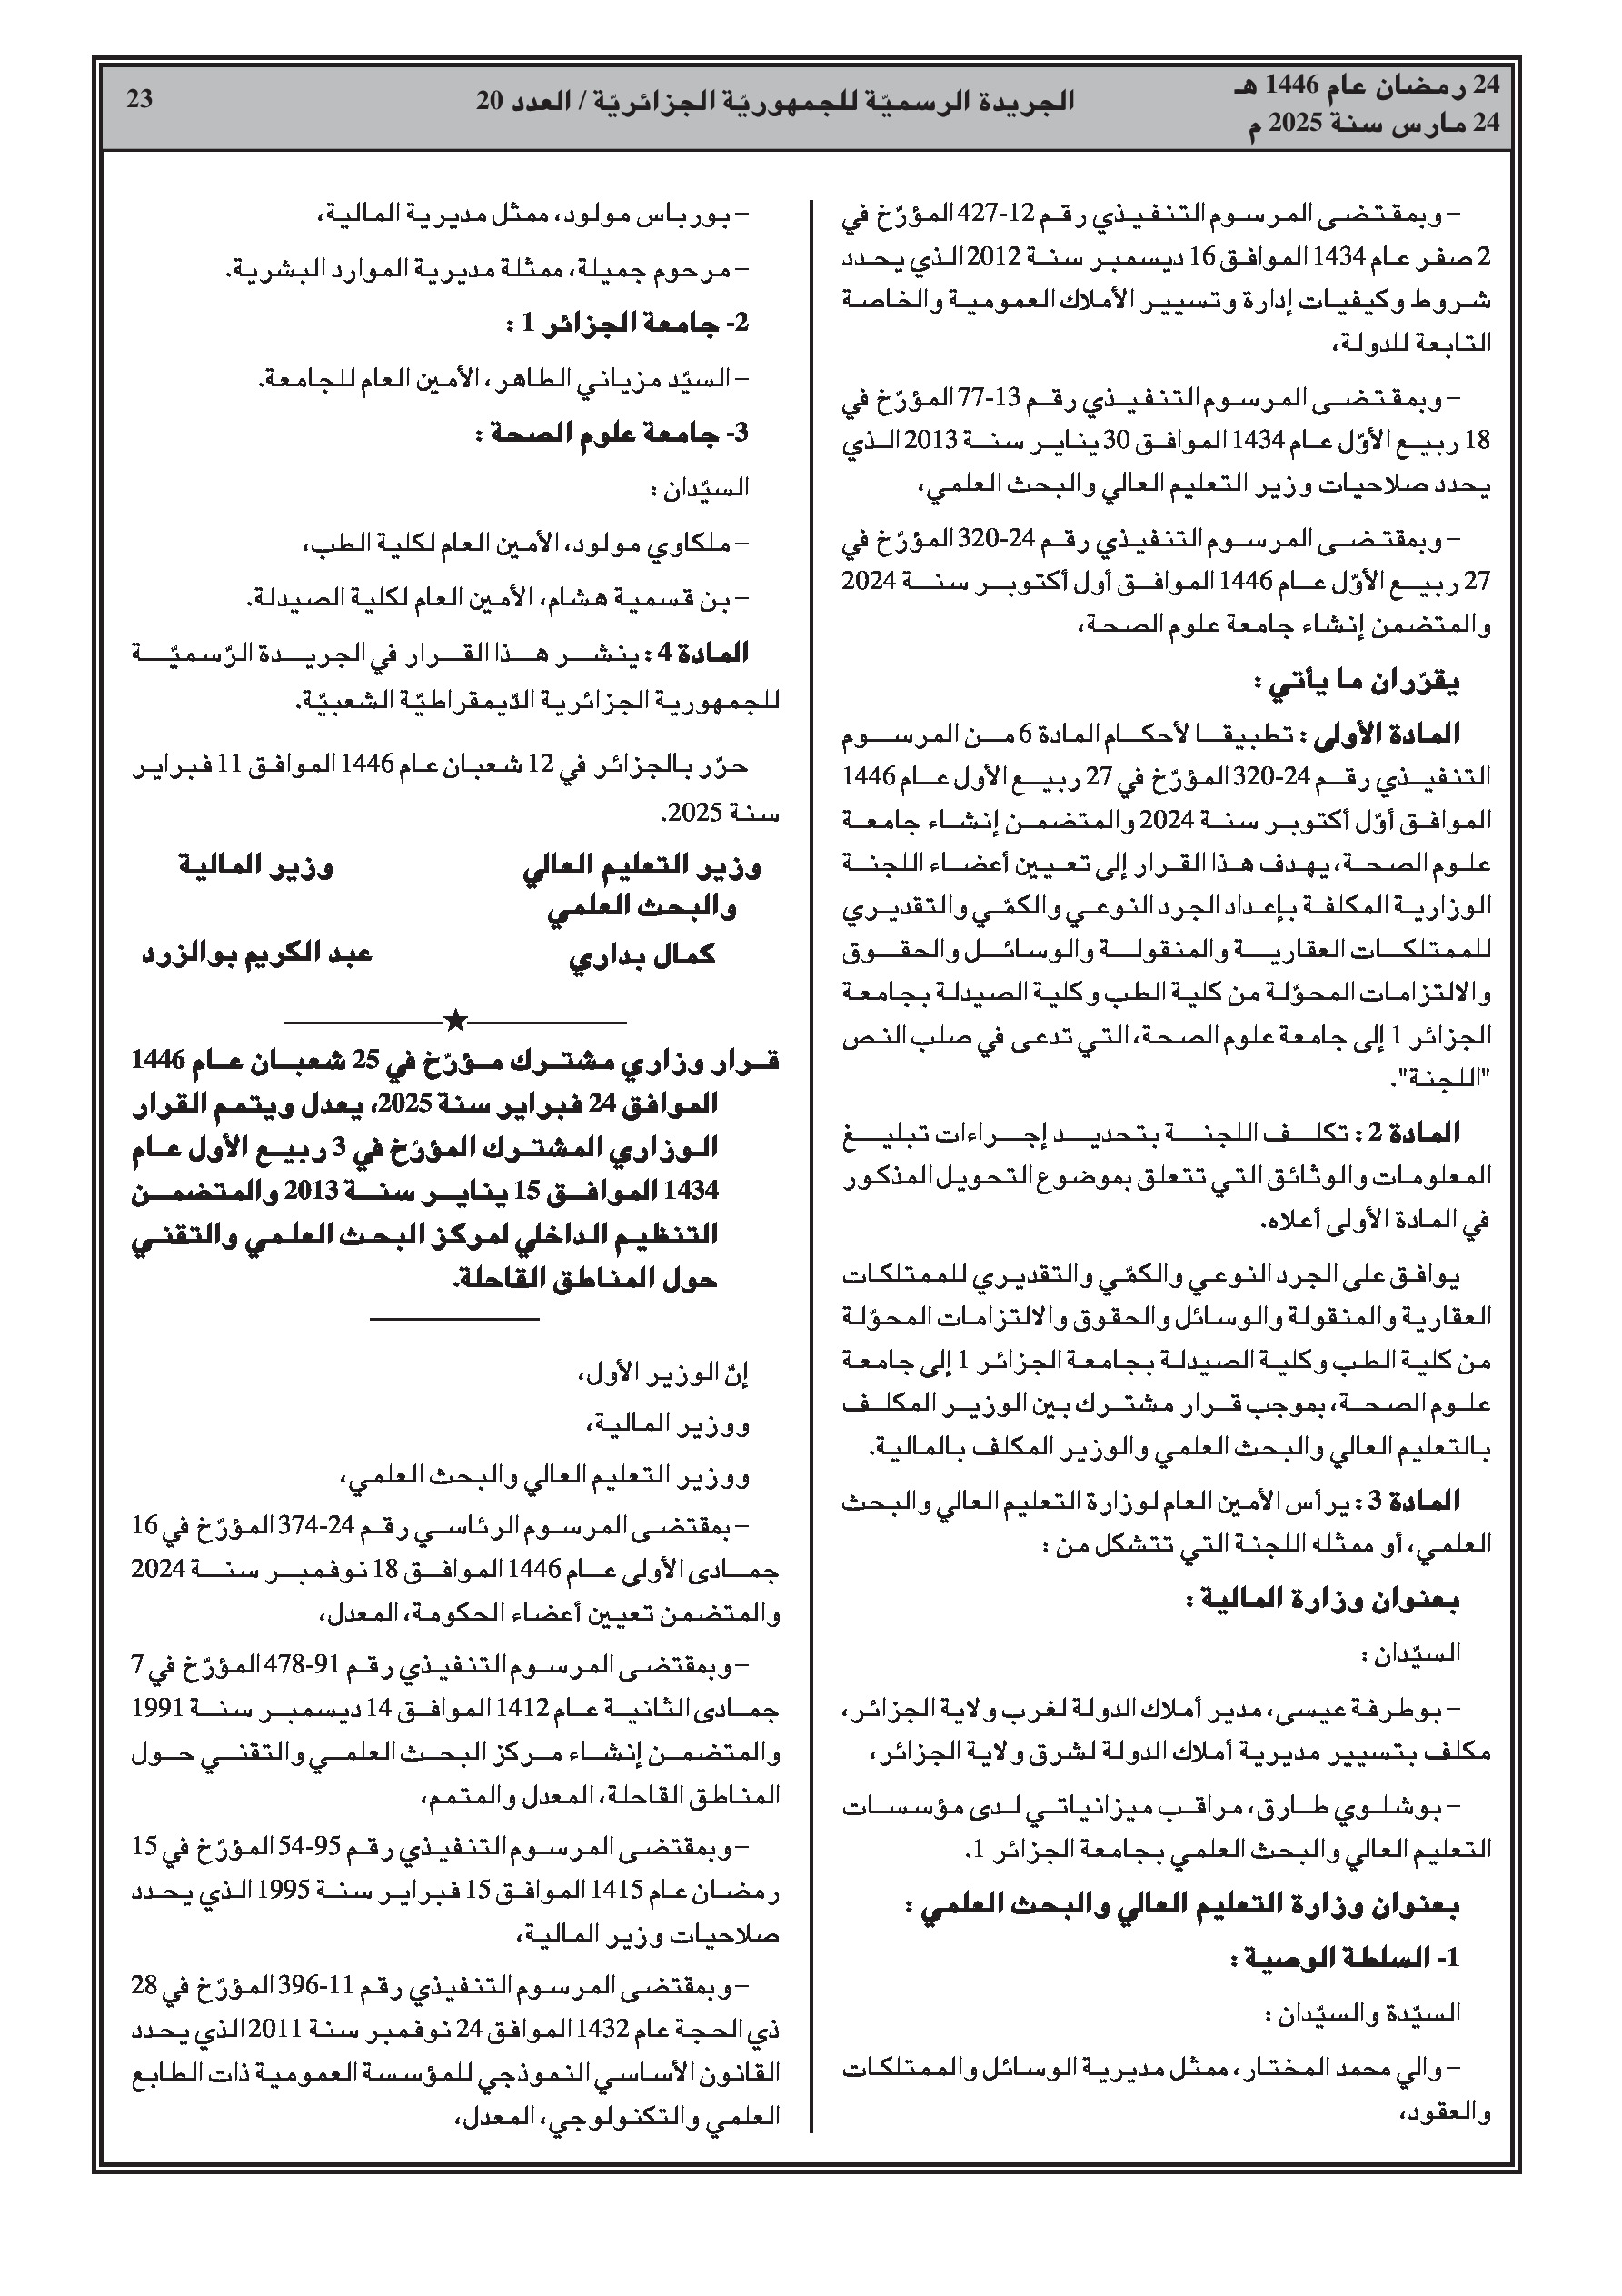 24 رمضان عام 1446 هـ
24 مارس سنة 2025 م
الجريدة الرسميّة للجمهوريّة الجزائريّة / العدد 20
23
– وبمقتضى المرسوم التنفيذي رقم 12-427 المؤرّخ في
2 صفر عام 1434 الموافق 16 ديسمبر سنة 2012 الذي يحدد
شروط وكيفيات إدارة وتسيير الأملاك العمومية والخاصة
التابعة للدولة،
– وبمقتضى المرسوم التنفيذي رقم 13-77 المؤرّخ في
18 ربيع الأوّل عام 1434 الموافق 30 يناير سنة 2013 الذي
يحدد صلاحيات وزير التعليم العالي والبحث العلمي،
– وبمقتضى المرسوم التنفيذي رقم 24-320 المؤرّخ في
27 ربيع الأوّل عام 1446 الموافق أول أكتوبر سنة 2024
والمتضمن إنشاء جامعة علوم الصحة،
يقرّران ما يأتي :
المادة الأولى : تطبيقا لأحكام المادة 6 من المرسوم
التنفيذي رقم 24-320 المؤرّخ في 27 ربيع الأول عام 1446
الموافق أوّل أكتوبر سنة 2024 والمتضمن إنشاء جامعة
علوم الصحة، يهدف هذا القرار إلى تعيين أعضاء اللجنة
الوزارية المكلفة بإعداد الجرد النوعي والكمّي والتقديري
للممتلكات العقارية والمنقولة والوسائل والحقوق
والالتزامات المحوّلة من كلية الطب وكلية الصيدلة بجامعة
الجزائر 1 إلى جامعة علوم الصحة، التي تدعى في صلب النص
"اللجنة".
المادة 2 : تكلف اللجنة بتحديد إجراءات تبليغ
المعلومات والوثائق التي تتعلق بموضوع التحويل المذكور
في المادة الأولى أعلاه.
يوافق على الجرد النوعي والكمّي والتقديري للممتلكات
العقارية والمنقولة والوسائل والحقوق والالتزامات المحوّلة
من كلية الطب وكلية الصيدلة بجامعة الجزائر 1 إلى جامعة
علوم الصحة، بموجب قرار مشترك بين الوزير المكلف
بالتعليم العالي والبحث العلمي والوزير المكلف بالمالية.
المادة 3 : يرأس الأمين العام لوزارة التعليم العالي والبحث
العلمي، أو ممثله اللجنة التي تتشكل من :
بعنوان وزارة المالية :
السيّدان :
– بوطرفة عيسى، مدير أملاك الدولة لغرب ولاية الجزائر،
مكلف بتسيير مديرية أملاك الدولة لشرق ولاية الجزائر،
– بوشلوي طارق، مراقب ميزانياتي لدى مؤسسات
التعليم العالي والبحث العلمي بجامعة الجزائر 1.
بعنوان وزارة التعليم العالي والبحث العلمي :
1- السلطة الوصية :
السيّدة والسيّدان :
– والي محمد المختار، ممثل مديرية الوسائل والممتلكات
والعقود،
– بورباس مولود، ممثل مديرية المالية،
– مرحوم جميلة، ممثلة مديرية الموارد البشرية.
2- جامعة الجزائر 1 :
– السيّد مزياني الطاهر، الأمين العام للجامعة.
3- جامعة علوم الصحة :
السيّدان :
– ملكاوي مولود، الأمين العام لكلية الطب،
– بن قسمية هشام، الأمين العام لكلية الصيدلة.
المادة 4 : ينشر هذا القرار في الجريدة الرّسميّة
للجمهورية الجزائرية الدّيمقراطيّة الشعبيّة.
حرّر بالجزائر في 12 شعبان عام 1446 الموافق 11 فبراير
سنة 2025.
وزير التعليم العالي وزير المالية
والبحث العلمي
كمال بداري عبد الكريم بوالزرد
قرار وزاري مشترك مؤرّخ في 25 شعبان عام 1446
الموافق 24 فبراير سنة 2025، يعدل ويتمم القرار
الوزاري المشترك المؤرّخ في 3 ربيع الأول عام
1434 الموافق 15 يناير سنة 2013 والمتضمن
التنظيم الداخلي لمركز البحث العلمي والتقني
حول المناطق القاحلة.
إنّ الوزير الأول،
ووزير المالية،
ووزير التعليم العالي والبحث العلمي،
– بمقتضى المرسوم الرئاسي رقم 24-374 المؤرّخ في 16
جمادى الأولى عام 1446 الموافق 18 نوفمبر سنة 2024
والمتضمن تعيين أعضاء الحكومة، المعدل،
– وبمقتضى المرسوم التنفيذي رقم 91-478 المؤرّخ في 7
جمادى الثانية عام 1412 الموافق 14 ديسمبر سنة 1991
والمتضمن إنشاء مركز البحث العلمي والتقني حول
المناطق القاحلة، المعدل والمتمم،
– وبمقتضى المرسوم التنفيذي رقم 95-54 المؤرّخ في 15
رمضان عام 1415 الموافق 15 فبراير سنة 1995 الذي يحدد
صلاحيات وزير المالية،
– وبمقتضى المرسوم التنفيذي رقم 11-396 المؤرّخ في 28
ذي الحجة عام 1432 الموافق 24 نوفمبر سنة 2011 الذي يحدد
القانون الأساسي النموذجي للمؤسسة العمومية ذات الطابع
العلمي والتكنولوجي، المعدل،